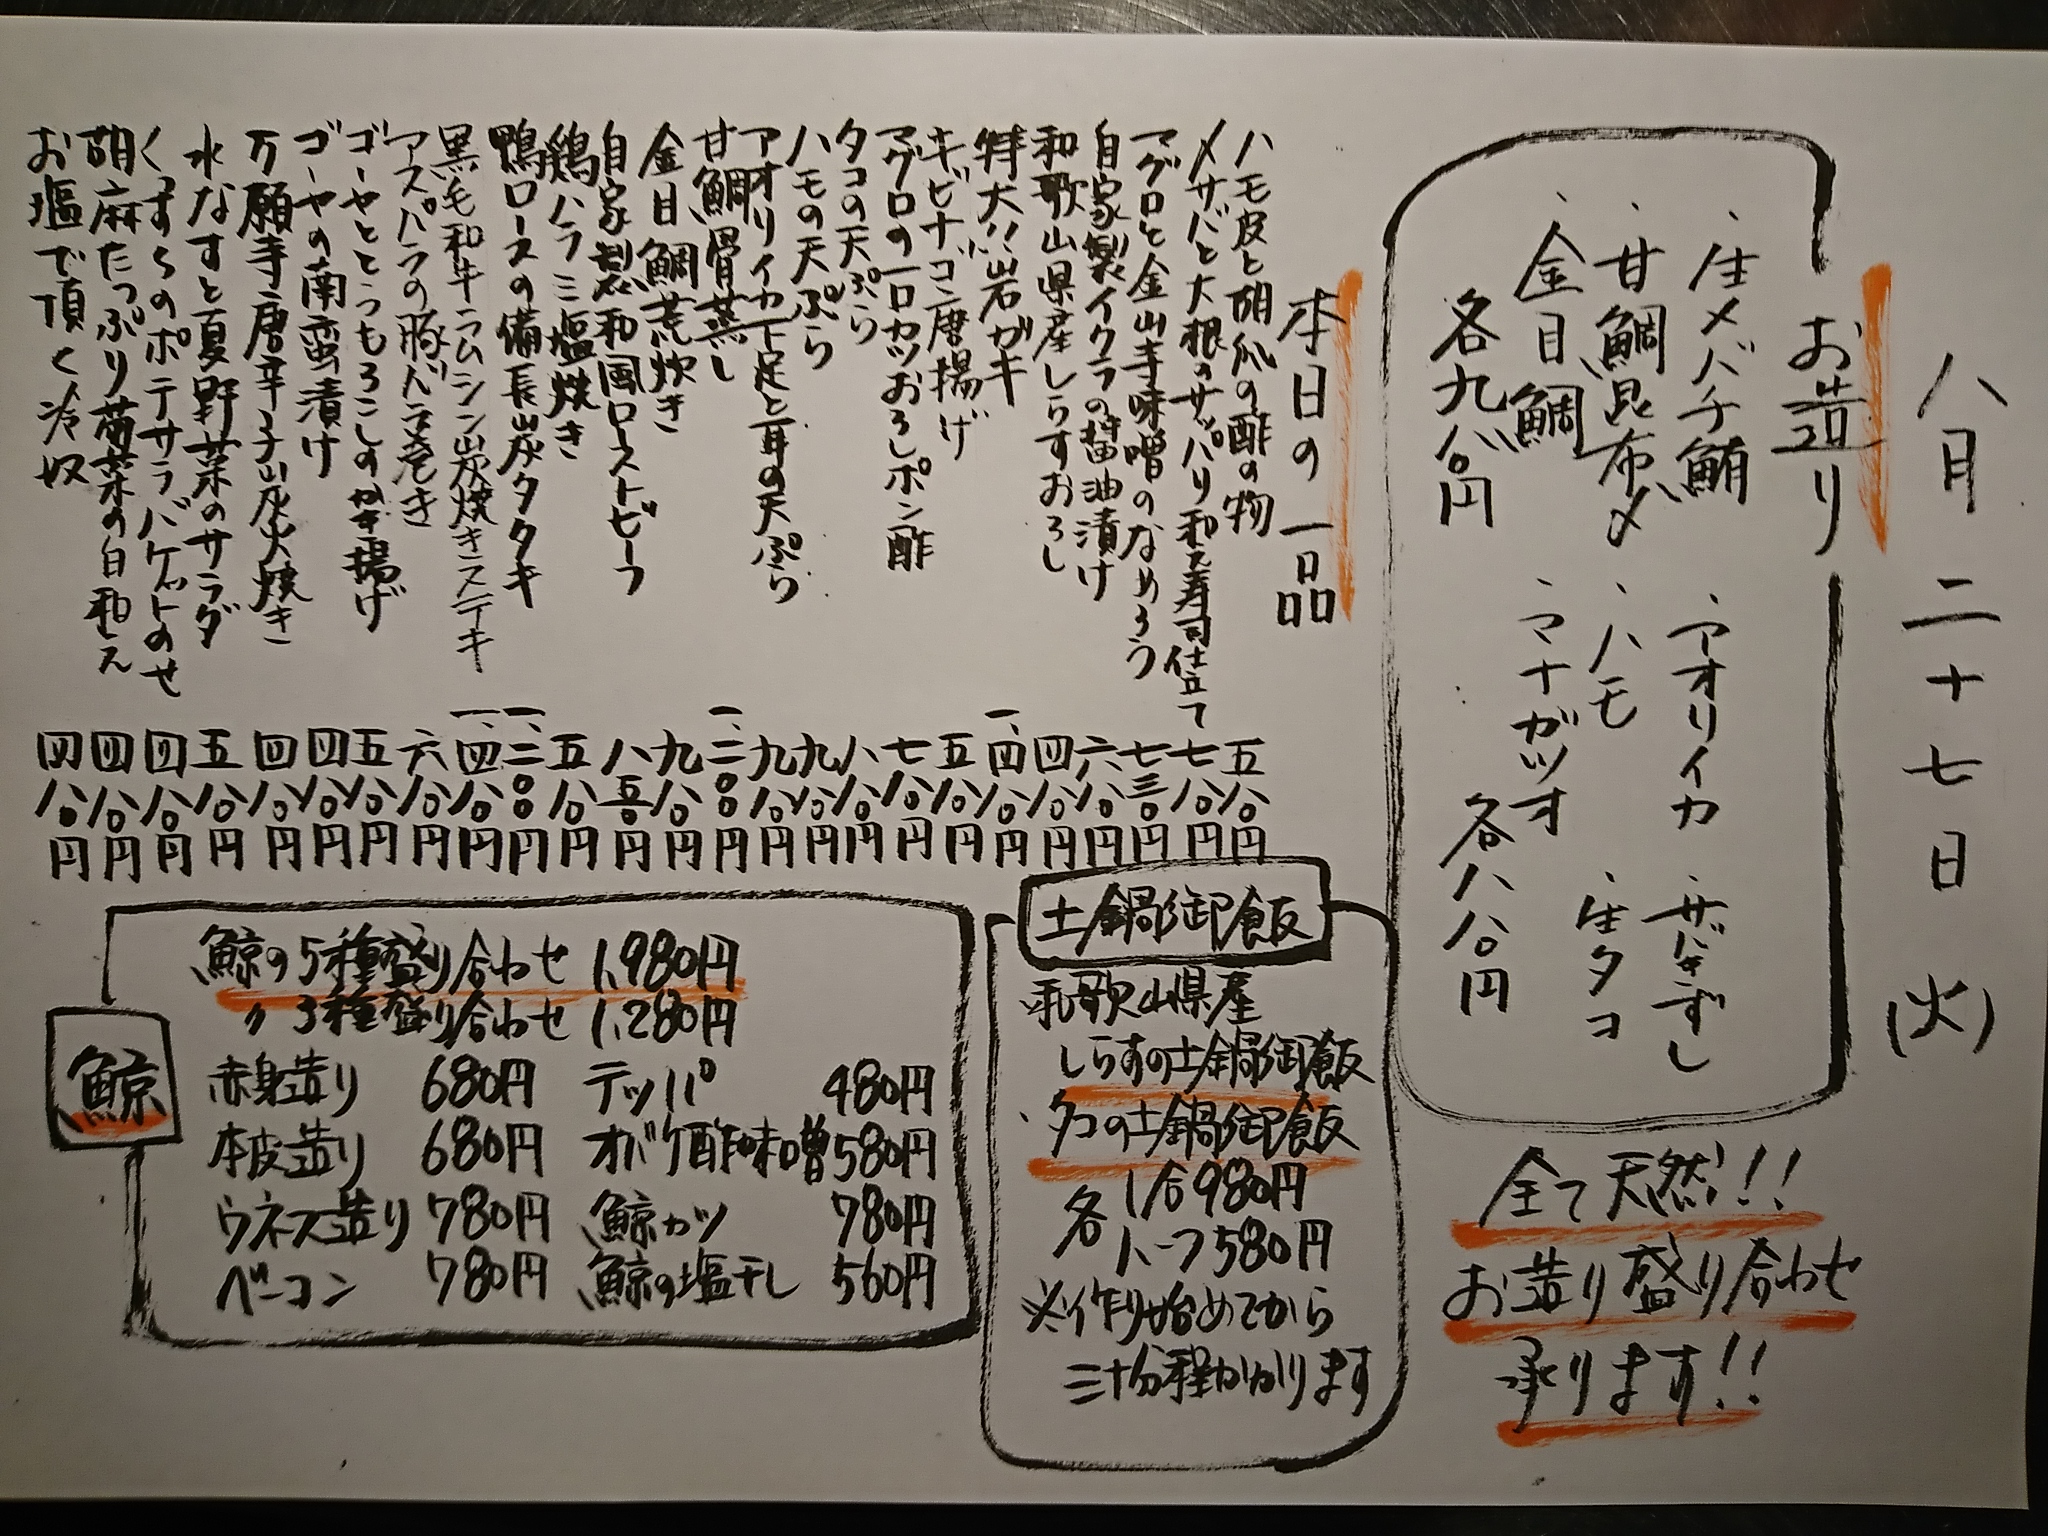 八月二十七日(火)
お造り
・生メバチ鮪
・アオリイカ
・サバきずし
・甘鯛昆布〆
・ハモ
・生タコ
・金目鯛
・マナガツオ
各九八〇円
各八八〇円
全て天然!!
お造り盛り合わせ
承ります!!
本日の一品
ハモ皮と胡瓜の酢の物 五八〇円
〆サバと大根のサッパリ和え寿司仕立て 七八〇円
マグロと金山寺味噌のなめろう 七三〇円
自家製イクラの醤油漬け 六八〇円
和歌山県産しらすおろし 四八〇円
特大!!岩ガキ 一、四八〇円
キビナゴ唐揚げ 五八〇円
マグロの一口カツおろしポン酢 七八〇円
タコの天ぷら 八八〇円
ハモの天ぷら 九八〇円
アオリイカ下足と耳の天ぷら 九八〇円
甘鯛骨蒸し 一、二〇〇円
金目鯛荒炊き 九八〇円
自家製和風ローストビーフ 八五〇円
鶏ハラミ塩焼き 五八〇円
鴨ロースの備長炭タタキ 一、二〇〇円
黒毛和牛ラムシン炭焼きステキ 一、四八〇円
アスパラの豚バラ巻き 六八〇円
ゴーヤととうもろこしのかき揚げ 五八〇円
ゴーヤの南蛮漬け 四八〇円
万願寺唐辛子炭火焼き 四八〇円
水なすと夏野菜のサラダ 五八〇円
くずらのポテサラバケットのせ 四八〇円
胡麻たっぷり菊菜の白和え 四八〇円
お塩で頂く冷奴 四八〇円
土鍋御飯
和歌山県産
しらすの土鍋御飯
・タコの土鍋御飯
各 1合980円
ハーフ580円
※作り始めてから
三十分程かかります
鯨
鯨の5種盛り合わせ 1,980円
〃 3種盛り合わせ 1,280円
赤身造り 680円 テッパ 480円
本皮造り 680円 オバケ酢味噌 580円
ウネス造り 780円 鯨カツ 780円
ベーコン 780円 鯨の塩干し 560円